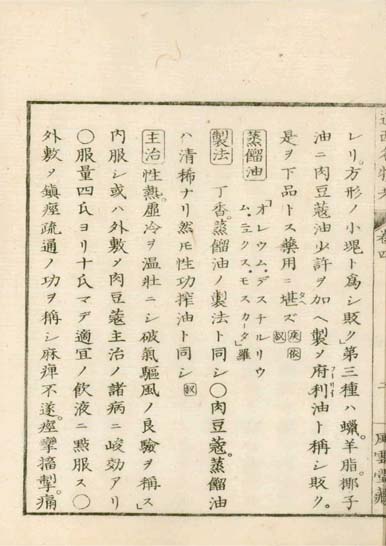 レリ。方形ノ小塊ト爲シ販ク」第三種ハ蠟。羊脂。椰子
油ニ肉豆蔻油少許ヲ加ヘ製メ府利油ト稱シ販ク。
是ヲ下品トス藥用ニ堪ズ
蒸餾油
「オレウム・デスチルリウ
ム・ニクス・モスカータ」羅
製法 丁香。蒸餾油ノ製法ト同シ〇肉豆蔻。蒸餾油
ハ清稀ナリ然𪜈性功搾油ト同シ
主治 性熱。虛冷ヲ溫壯ニシ破氣驅風ノ良驗ヲ稱ス」
内服シ或ハ外敷メ肉豆蔻主治ノ諸病ニ峻効アリ
〇服量四氏ヨリ十氏マデ適宜ノ飮液ニ點服ス〇
外敷メ鎭痙疏通ノ功ヲ稱シ麻痺不遂。痙攣搐掣。痛